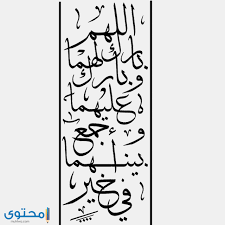 اللهم
بارك لهما
وبارك
عليهما
وأجمع
بينهما
في خير
محتوى